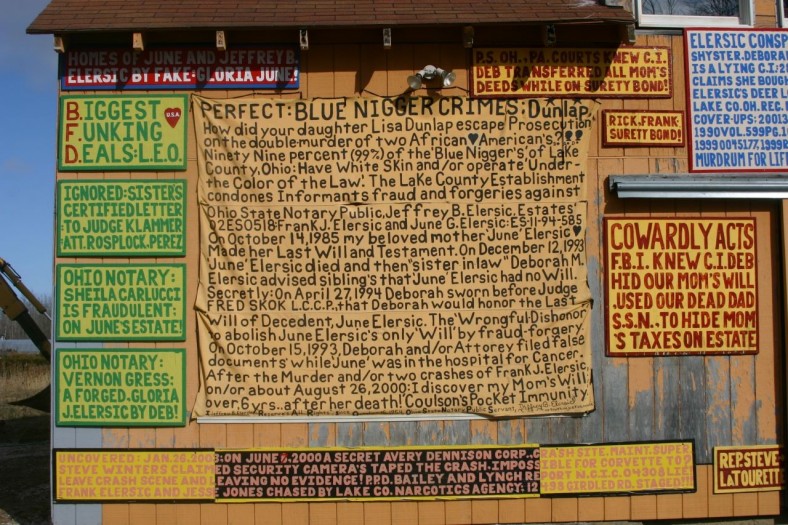 HOMES OF JUNE AND JEFFREY B.
ELERSIC BY FAKE: GLORIA JUNE!
B.IGGEST
F.UNKING
D.EALS: L.E.O.
U.S.A.
IGNORED: SISTER'S
CERTIFIED LETTER
TO JUDGE KLAMMER
ATT. ROSPLOCK. PEREZ
OHIO NOTARY:
SHEILA CARLUCCI
IS FRAUDULENT:
ON JUNE'S ESTATE!
OHIO NOTARY:
VERNON GRESS:
A FORGED. GLORIA
J. ELERSIC BY DEB!
PERFECT: BLUE NIGGER CRIMES: Dunlap
How did your daughter Lisa Dunlap escape Prosecution
on the double murder of two African♥American's?
Ninety Nine percent (99%) of the Blue Nigger's, of Lake
County, Ohio: Have White Skin and/or operate 'Under-
the Color of the Law'. The Lake County Establishment
condones Informants fraud and forgeries against
Ohio State Notary Public, Jeffrey B. Elersic, Estates'
On October 14, 1985 my beloved mother June' Elersic♥
Made her Last Will and Testament. On December 12, 1993
June' Elersic died and then "sister in law" Deborah M.
Elersic advised sibling's that June' Elersic had no Will.
Secretly: On April 27, 1994 Deborah sworn before Judge
FRED SKOK L.C.C.P., that Deborah would honor the Last
Will of Decedent, June Elersic. The Wrongful-Dishonor
to abolish June Elersic's only 'Will' by fraud-forgery.
On October 15, 1993, Deborah and/or Attorey filed false
documents' while 'June' was in the hospital for Cancer.
After the Murder and/or two crashes of Frank J. Elersic,
on/or about August 26, 2000: I discover my Mom's Will
over, 6 yrs.. after her death! Coulson's Pocket Immunity
P.S. OH., PA. COURTS KNEW C.I.
DEB TRANSFERRED ALL MOM'S
DEEDS WHILE ON SURETY BOND!
RICK. FRANK
SURETY BOND!
ELERSIC CONSP
SHYSTER. DEBORA
IS A LYING C.I: 2
LAIMS SHE BOUG
ELERSIC'S DEER LO
LAKE CO. OH. REC.
COVER-UPS: 20013
1990 VOL. 599 PG. 1
MURDRUM FOR LIF
COWARDLY ACTS
F.B.I. KNEW C.I. DEB
HID OUR MOM'S WILL
.USED OUR DEAD DAD
S.S.N.. TO HIDE MOM
'S TAXES ON ESTATE
UNCOVERED: JAN. 26, 200 3: ON JUNE 2000 A SECRET AVERY DENNISON CORP.. RASH SITE. MAINT. SUPER
STEVE WINTERS CLAIM ED SECURITY CAMERA'S TAPED THE CRASH. IMPOSS IBLE FOR CORVETTE TO
LEAVE CRASH SCENE AND L EAVING NO EVIDENCE! P.P.D. BAILEY AND LYNCH RE PORT N.C.I.C. 04308 LIE
FRANK ELERSIC AND JESS E JONES CHASED BY LAKE CO. NARCOTICS AGENCY: 12 GIRDLED RD. STAGED!!!
REP. STEVE
LATOURETT